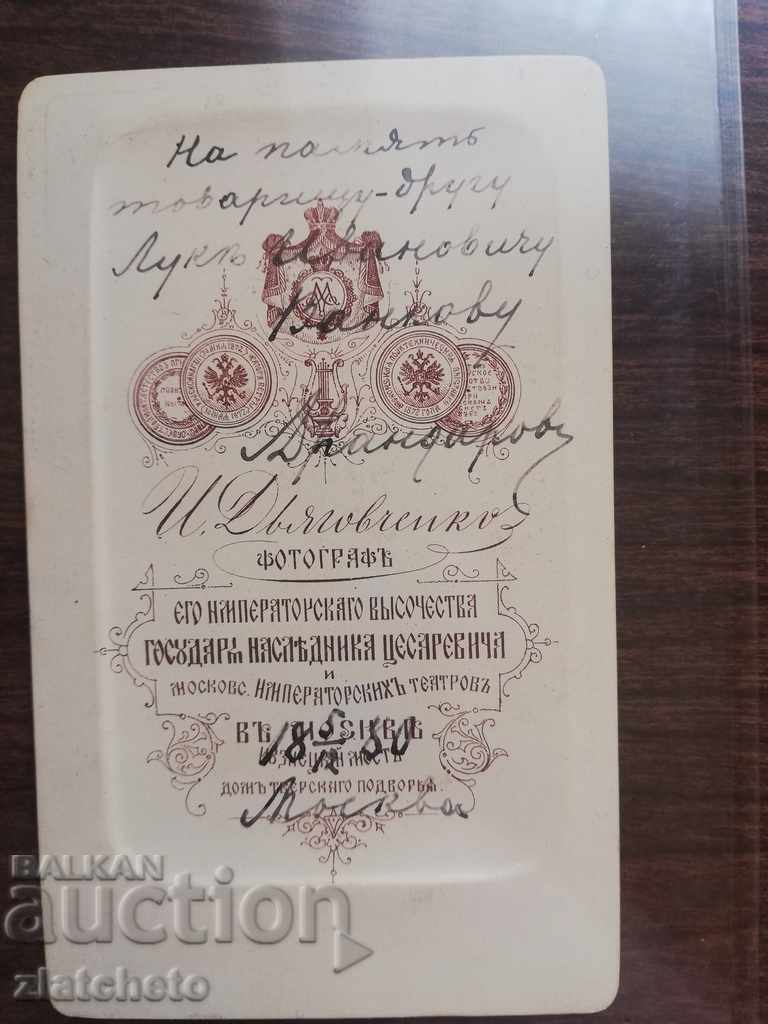 На память
товарищу-другу
Лукѣ Ивановичу
Ванкову
И. Дьяговченко
ФОТОГРАФЪ
ЕГО ИМПЕРАТОРСКАГО ВЫСОЧЕСТВА
ГОСУДАРЯ НАСЛѢДНИКА ЦЕСАРЕВИЧА
И
МОСКОВС. ИМПЕРАТОРСКИХЪ ТЕАТРОВЪ
ВЪ МОСКВѢ
18 5/12 80
КУЗНЕЦКІЙ МОСТЪ
ДОМЪ ТВЕРСКАГО ПОДВОРЬЯ.
Москва
BALKAN
auction
zlatcheto